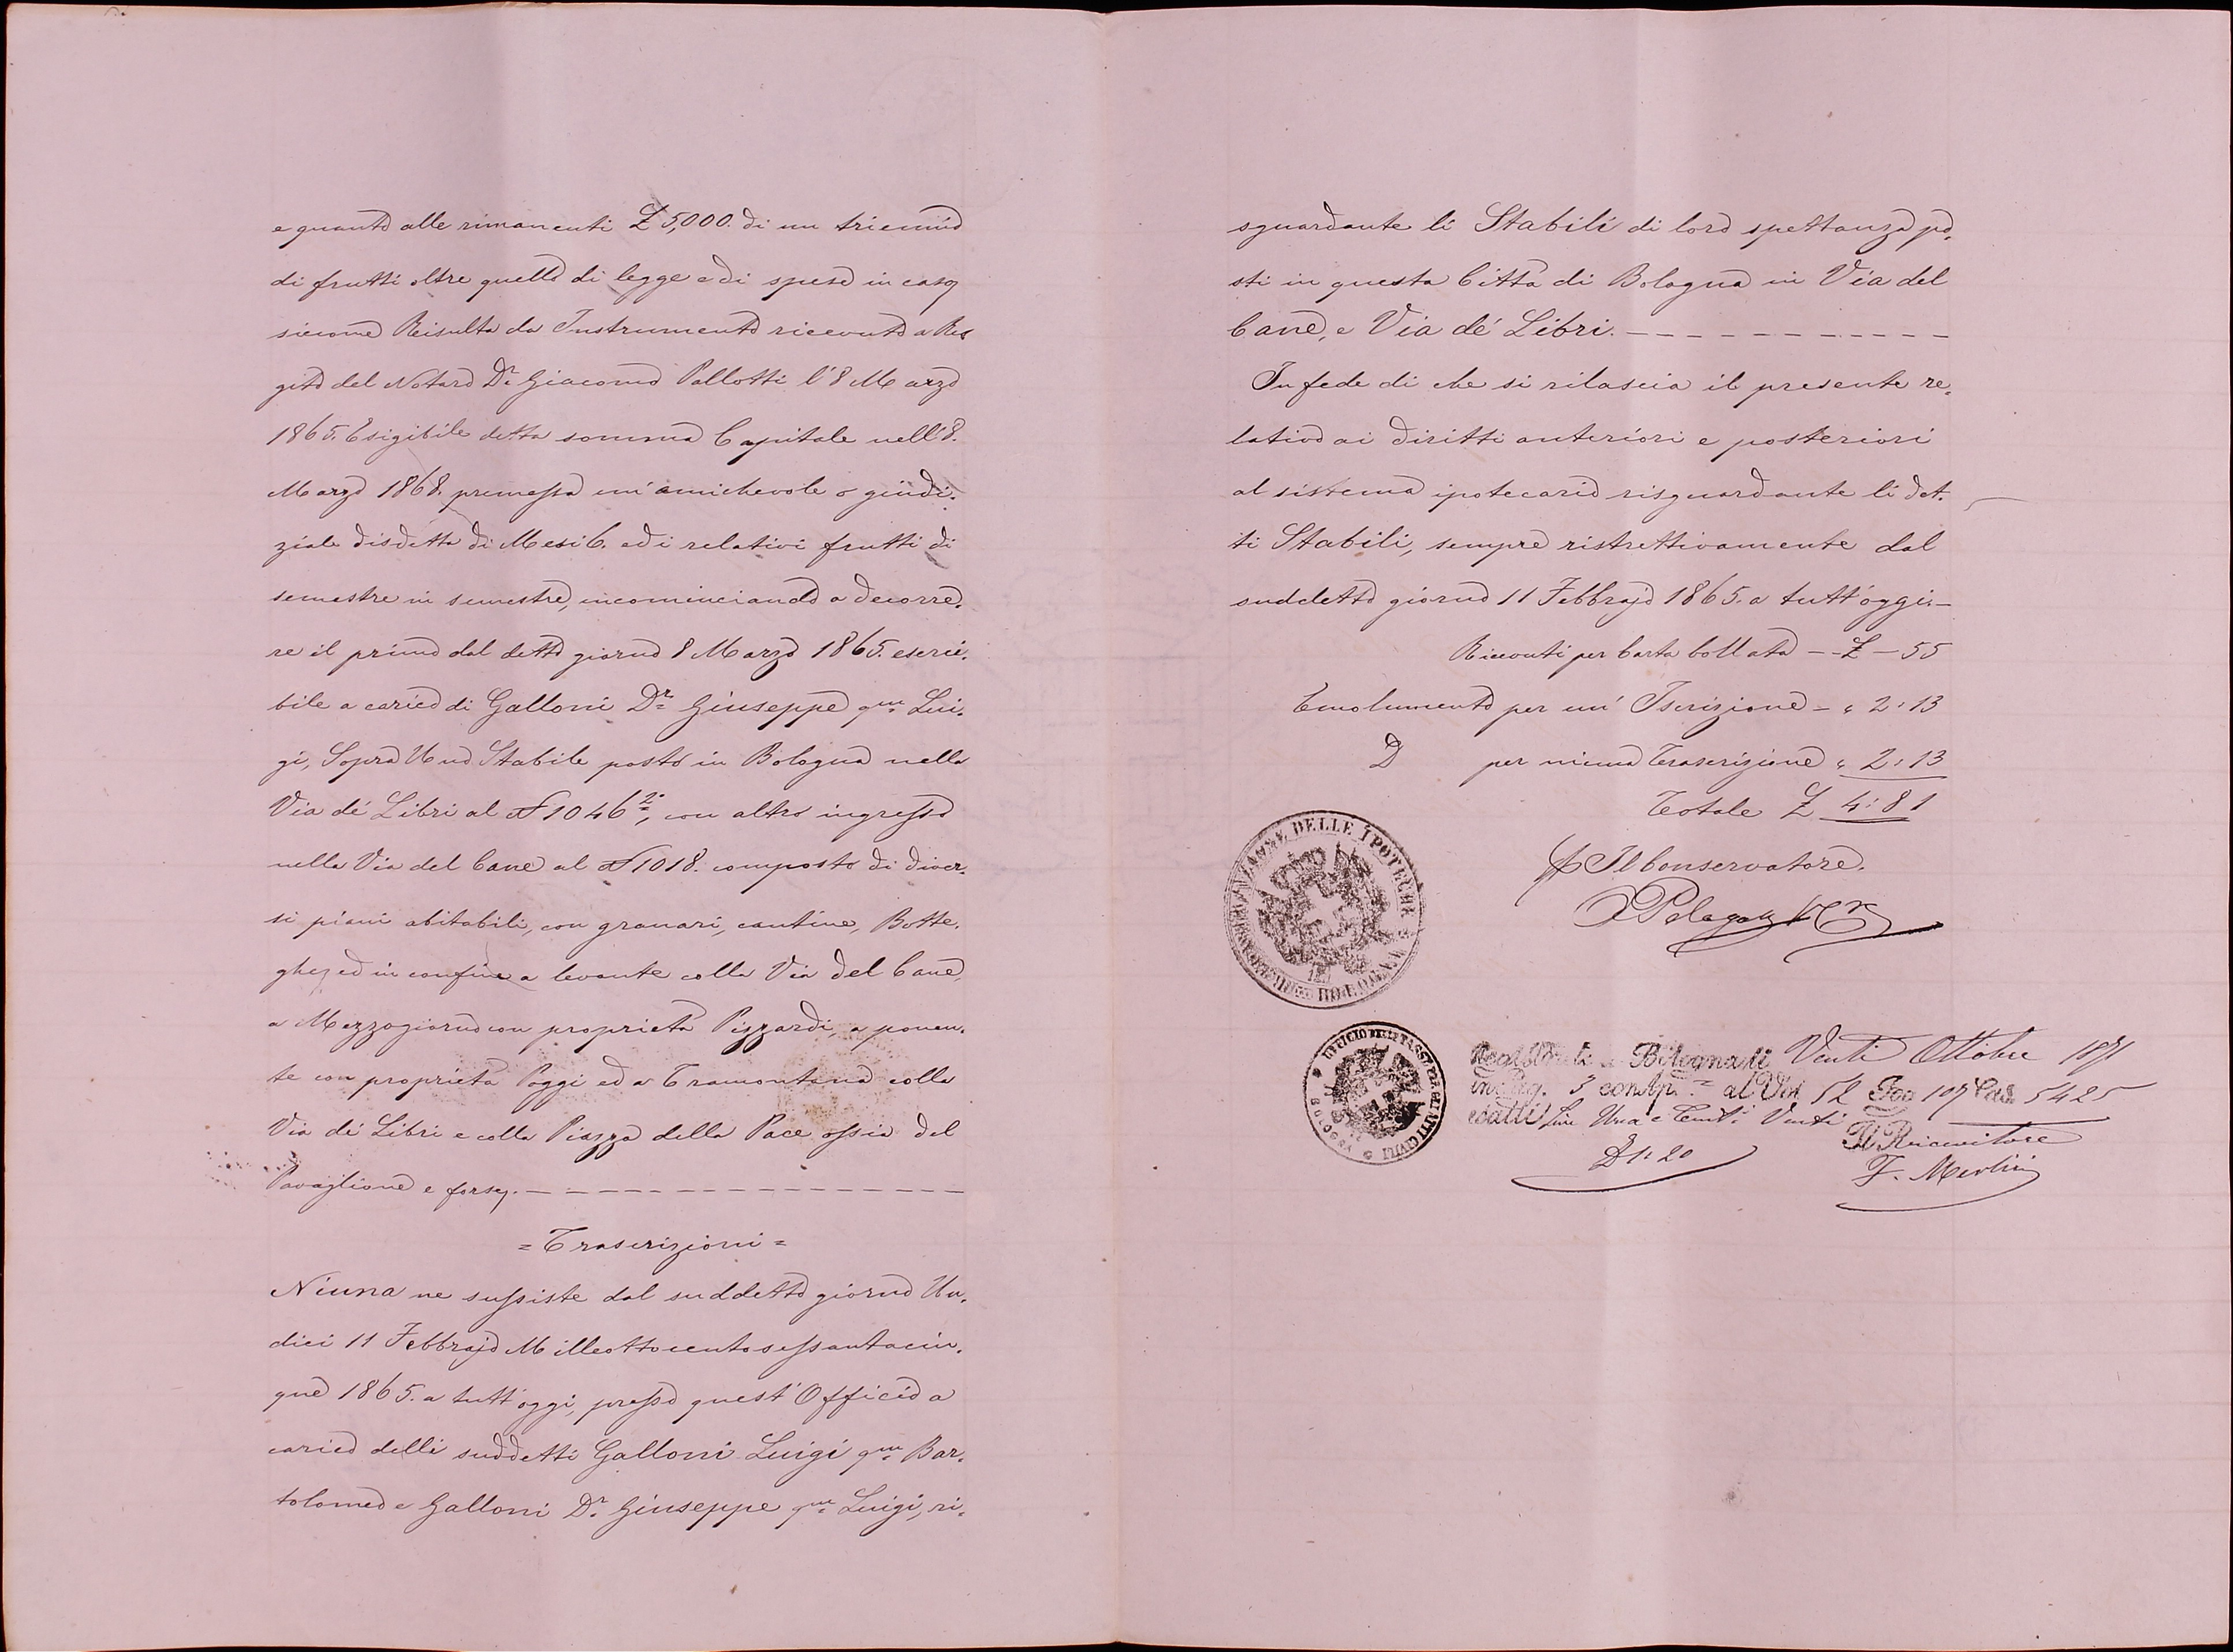 e quanto alle rimanenti £ 5,000. di un triennio
di frutti oltre quello di legge e di spese in caso,
siccome Risulta da Instrumento ricevuto a Ro-
gito del Notaro Dr. Giacomo Pallotti l'8 Marzo
1865. Esigibile detta somma Capitale nell'8.
Marzo 1868. premessa un'amichevole o giudi-
ziale disdetta di Mesi 6. ed i relativi frutti di
semestre in semestre, incominciando a decorre-
re il primo dal detto giorno 8 Marzo 1865. eserci-
bile a carico di Galloni Dr. Giuseppe qm. Lui-
gi, Sopra Uno Stabile posto in Bologna nella
Via de' Libri al N 1046 2°, con altro ingresso
nella Via del Cane al N 1018. composto di diver-
si piani abitabili, con granari, cantine, Botte-
ghe, ed in confine a levante colla Via del Cane,
a Mezzogiorno con proprietà Pizzardi, a ponen-
te con proprietà Poggi ed a Tramontana colla
Via de' Libri e colla Piazza della Pace ossia del
Pavaglione e forse,. — — — — — — — — — —
= Trascrizioni =
Niuna ne sussiste dal suddetto giorno Un-
dici 11 Febbrajo Milleottocentosessantacin-
que 1865. a tutt'oggi, presso quest'Officio a
carico delli suddetti Galloni Luigi qm. Bar-
tolomeo e Galloni Dr. Giuseppe qm. Luigi, ri-
sguardante li Stabili di loro spettanza po-
sti in questa Città di Bologna in Via del
Cane, e Via de' Libri. — — — — — — — — —
In fede di che si rilascia il presente re-
lativo ai diritti anteriori e posteriori
al sistema ipotecario risguardante li det-
ti Stabili, sempre ristrettivamente dal
suddetto giorno 11 Febbrajo 1865. a tutt'oggi. —
Ricevuti per Carta bollata — - £ — 55
Emolumento per un' Iscrizione — " 2 : 13
D per niuna Trascrizione " 2 : 13
Totale £ 4 : 81
Il Conservatore.
CONSERVAZIONE DELLE IPOTECHE
BOLOGNA
UFFICIO DELLE TASSE PER GLI ATTI CIVILI
BOLOGNA
Registrato a Bologna li Venti Ottobre 1871
in Reg. 3 al Vol 52 Fog 107 Cas. 5425
esatti Lire Una e Cent.i Venti
£ 1: 20
Il Ricevitore
F. Merlini